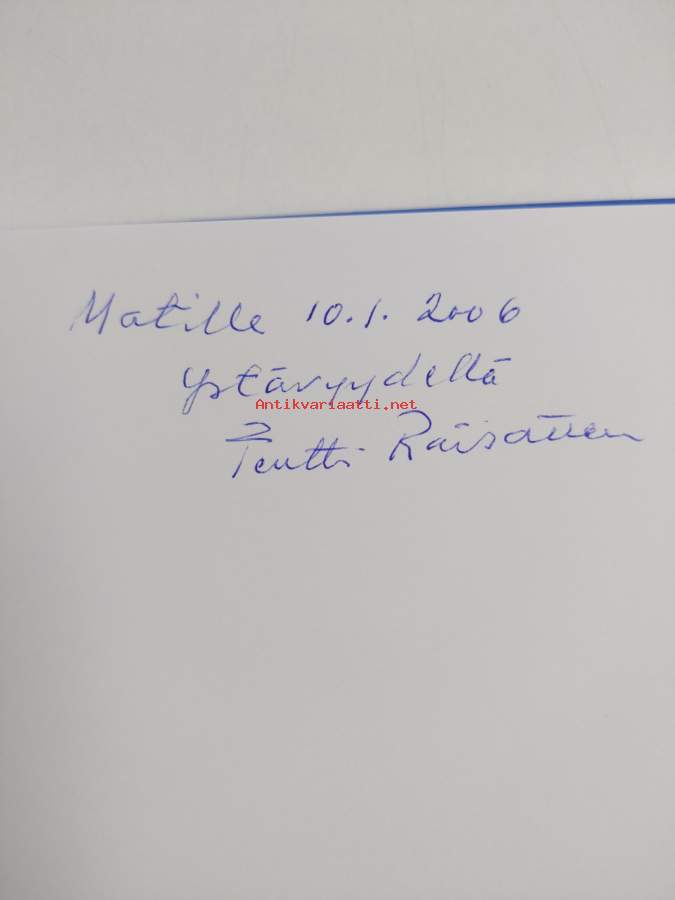 Matille 10.1.2006
ystävyydellä
Antikvariaatti.net
Pentti Räisänen